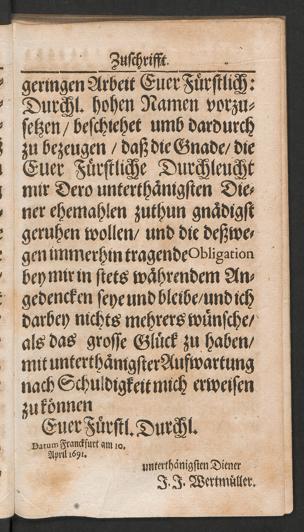 Zuschrifft.
geringen Arbeit Euer Fürstlich:
Durchl. hohen Namen vorzu-
setzen / beschiehet umb dardurch
zu bezeugen / daß die Gnade / die
Euer Fürstliche Durchleucht
mir Dero unterthänigsten Die-
ner ehemahlen zuthun gnädigst
geruhen wollen / und die deßwe-
gen immerhin tragende Obligation
bey mir in stets währendem An-
gedencken seye und bleibe / und ich
darbey nichts mehrers wünsche /
als das grosse Glück zu haben /
mit unterthänigster Aufwartung
nach Schuldigkeit mich erweisen
zu können
Euer Fürstl. Durchl.
Datum Franckfurt am 10.
April 1691.
unterthänigsten Diener
J. J. Wertmüller.